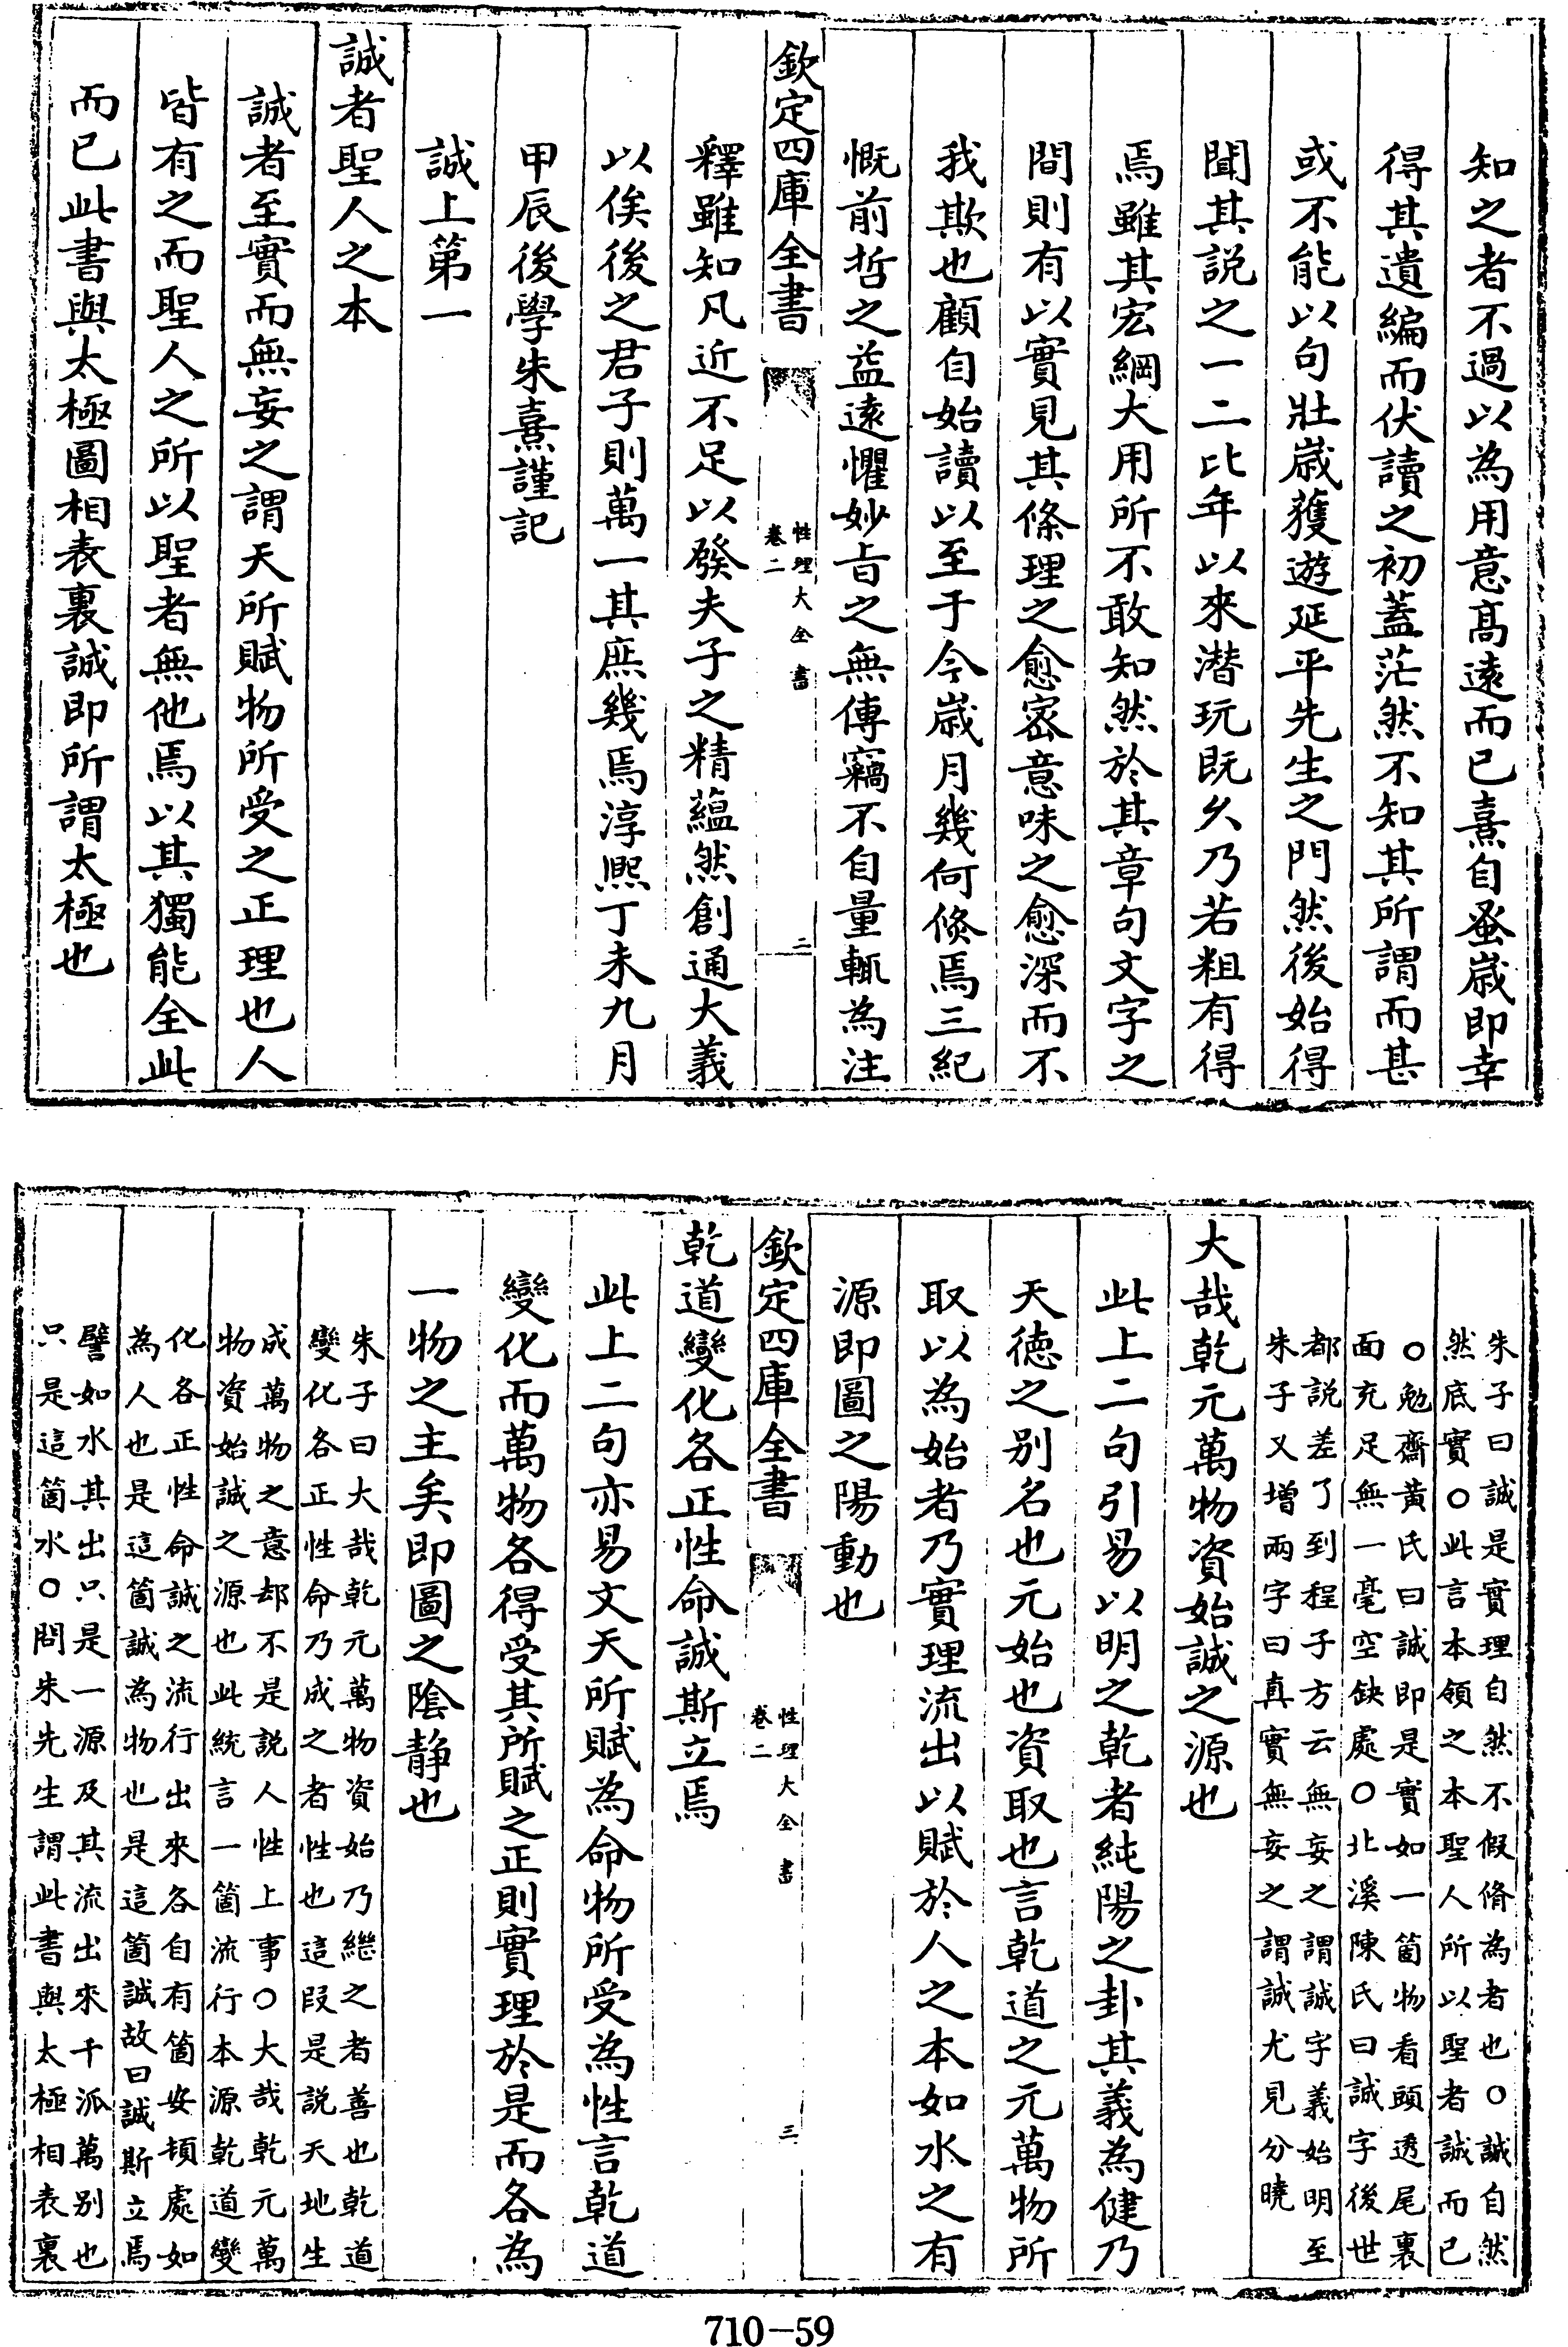 知之者不過以為用意髙遠而已熹自蚤嵗即幸
得其遺編而伏讀之初蓋茫然不知其所謂而甚
或不能以句壯嵗獲遊延平先生之門然後始得
聞其説之一二比年以來潜玩既乆乃若粗有得
焉雖其宏綱大用所不敢知然於其章句文字之
間則有以實見其條理之愈宻意味之愈深而不
我欺也顧自始讀以至于今嵗月幾何倐焉三紀
慨前哲之益逺懼妙㫖之無傳竊不自量輒為注
欽定四庫全書
性理大全書
卷二
二
釋雖知凡近不足以發夫子之精藴然創通大義
以俟後之君子則萬一其庶幾焉淳熙丁未九月
甲辰後學朱熹謹記
誠上第一
誠者聖人之本
誠者至實而無妄之謂天所賦物所受之正理也人
皆有之而聖人之所以聖者無他焉以其獨能全此
而已此書與太極圖相表裏誠即所謂太極也
朱子曰誠是實理自然不假脩為者也○誠自然
然底實○此言本領之本聖人所以聖者誠而已
○勉齋黄氏曰誠即是實如一箇物看頭透尾裏
面充足無一毫空缺處○北溪陳氏曰誠字後世
都説差了到程子方云無妄之謂誠字義始明至
朱子又增兩字曰真實無妄之謂誠尤見分曉
大哉乾元萬物資始誠之源也
此上二句引易以明之乾者純陽之卦其義為健乃
天徳之别名也元始也資取也言乾道之元萬物所
取以為始者乃實理流出以賦於人之本如水之有
源即圖之陽動也
欽定四庫全書
性理大全書
卷二
三
乾道變化各正性命誠斯立焉
此上二句亦易文天所賦為命物所受為性言乾道
變化而萬物各得受其所賦之正則實理於是而各為
一物之主矣即圖之隂静也
朱子曰大哉乾元萬物資始乃繼之者善也乾道
變化各正性命乃成之者性也這叚是説天地生
成萬物之意却不是説人性上事○大哉乾元萬
物資始誠之源也此統言一箇流行本源乾道變
化各正性命誠之流行出來各自有箇安頓處如
為人也是這箇誠為物也是這箇誠故曰誠斯立焉
譬如水其出只是一源及其流出來千派萬别也
只是這箇水○問朱先生謂此書與太極相表裏
710-59